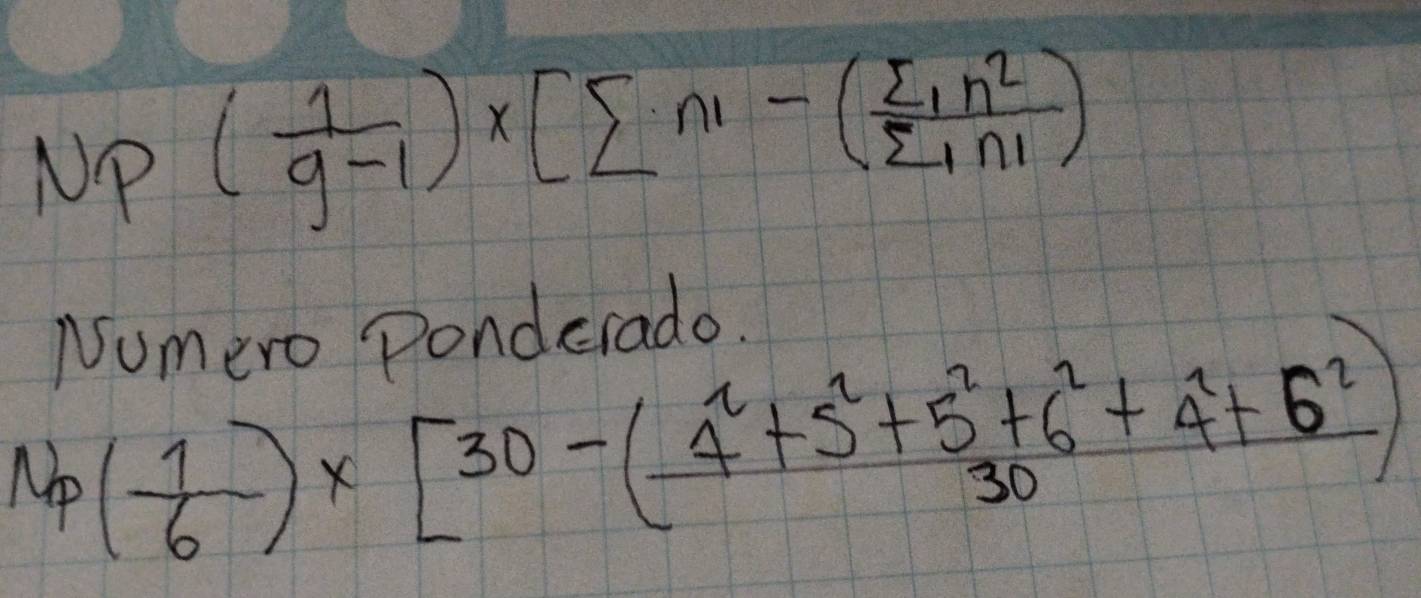 Np (1/g-1) x [Σ ni - (Σi n²/Σi ni)
Numero Ponderado.
Np (1/6) x [30 - (4² + 5² + 5² + 6² + 4² + 6²/30)